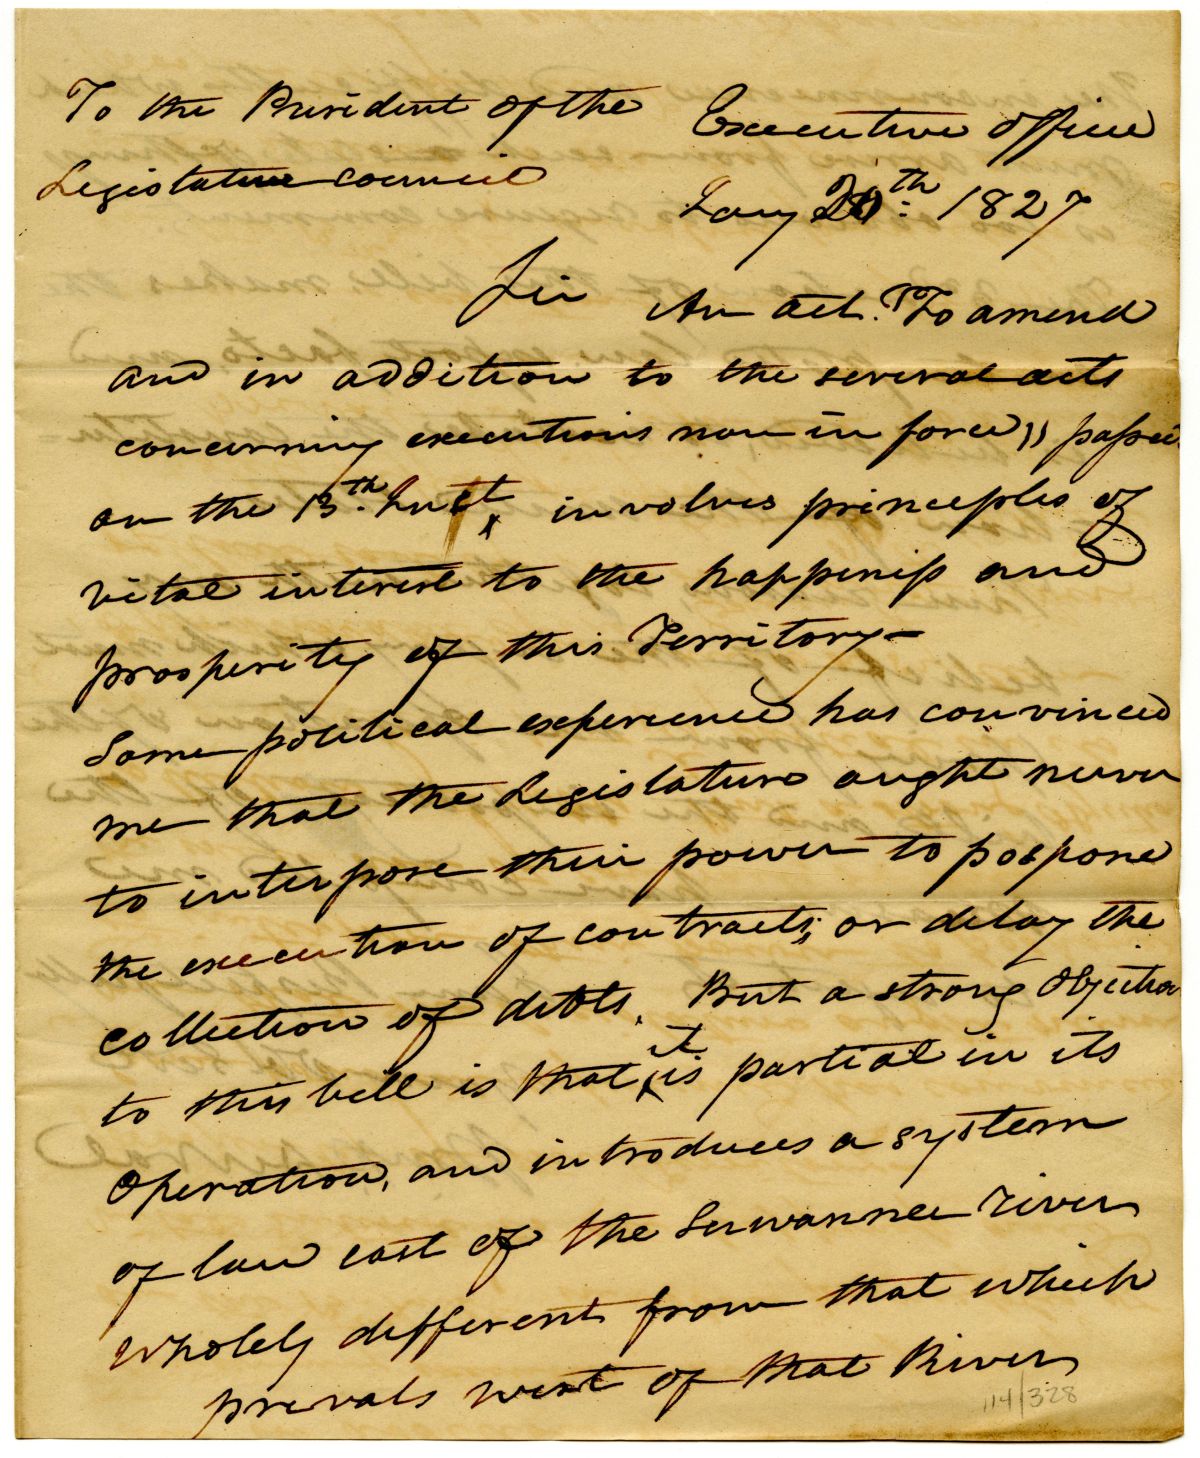 To the President of the
Legislature council
Executive office
Jany 20th: 1827
Sir An act. "To amend
and in addition to the several acts
concerning executions now in force," passed
on the 13th. Inst involves principles of
vital interest to the happiness and
prosperity of this Territory—
Some political experience has convinced
me that the Legislature aught never
to interpose their power to pospone
the execution of contracts; or delay the
collection of debts. But a strong objection
to this bill is that it is partial in its
operation, and introduces a system
of law east of the Suwannee river
wholely different from that which
prevals west of that River
114/328